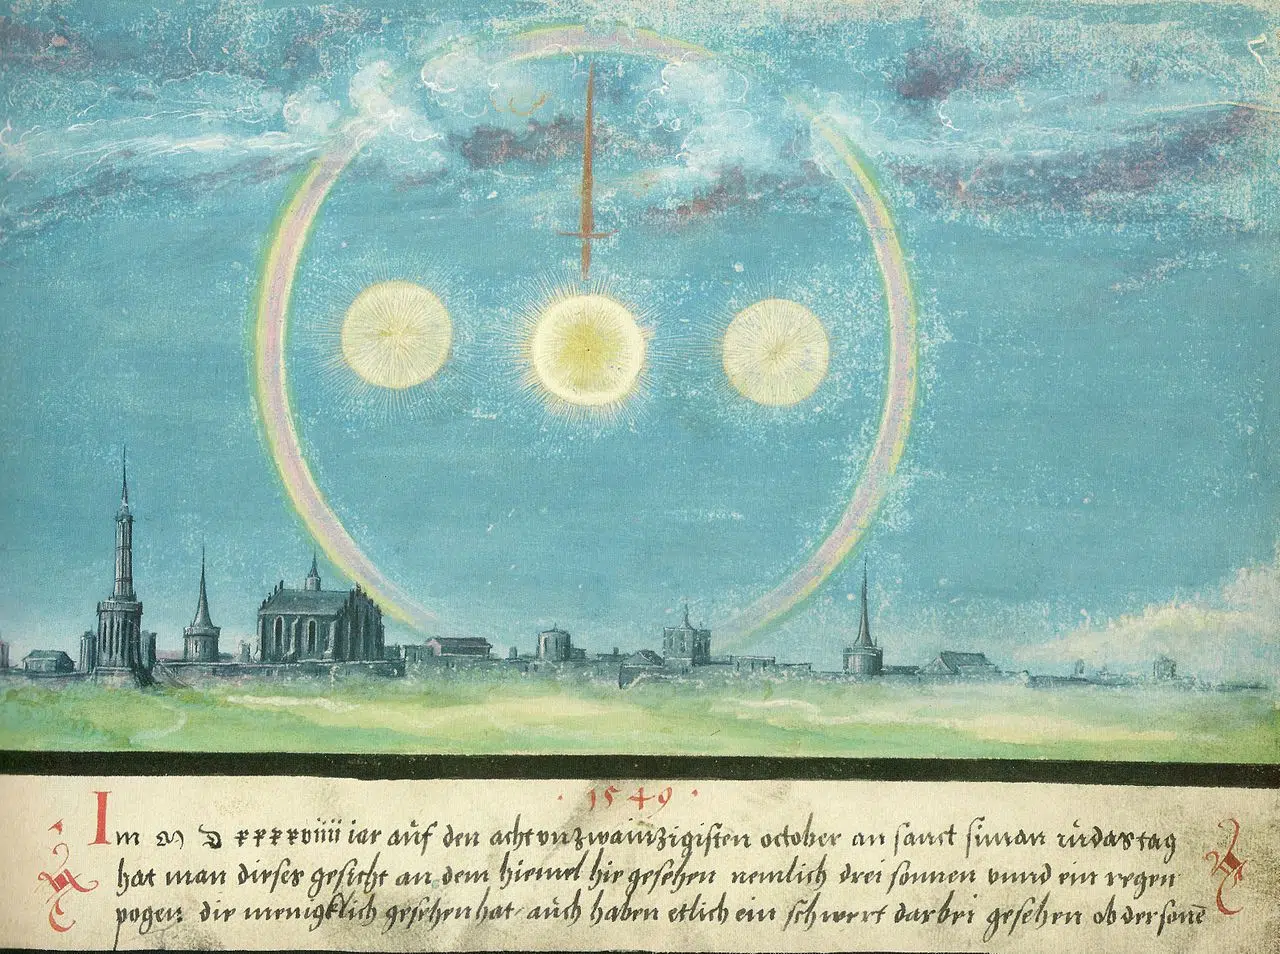 · 1549 ·
Im M D xxxxviiii iar auf den acht vnzwainzigisten october an sanct siman
hat man dieses gesicht an dem hiemel hie gesehen nemlich drei sonnen vnnd ein regen
pogen die menigklich gesehen hat auch haben etlich ein schwert darbei gesehen ob der sonē